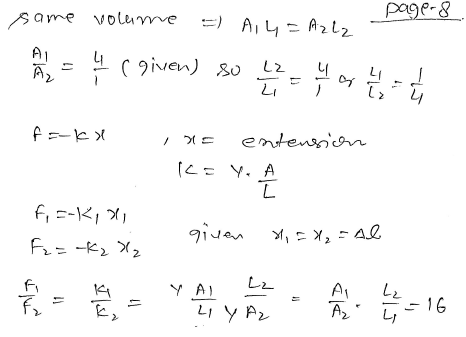 page-8
same volume => A1L1 = A2L2
A1/A2 = 4/1 (given) so L2/L1 = 4/1 or L1/L2 = 1/4
F = -Kx , x = extension
K = Y. A/L
F1 = -K1 x1
F2 = -K2 x2 given x1 = x2 = Δl
F1/F2 = K1/K2 = Y A1/L1 L2/Y A2 = A1/A2 . L2/L1 = 16